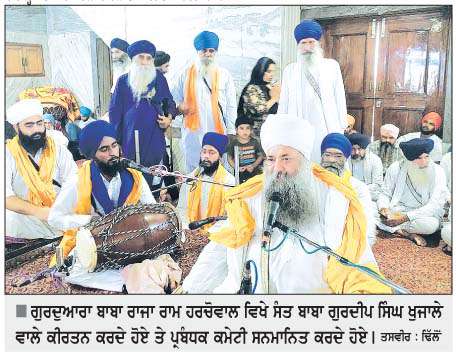 ਗੁਰਦੁਆਰਾ ਬਾਬਾ ਰਾਜਾ ਰਾਮ ਹਰਚੋਵਾਲ ਵਿਖੇ ਸੰਤ ਬਾਬਾ ਗੁਰਦੀਪ ਸਿੰਘ ਖੁਜਾਲੇ
ਵਾਲੇ ਕੀਰਤਨ ਕਰਦੇ ਹੋਏ ਤੇ ਪ੍ਰਬੰਧਕ ਕਮੇਟੀ ਸਨਮਾਨਿਤ ਕਰਦੇ ਹੋਏ। ਤਸਵੀਰ : ਢਿੱਲੋਂ